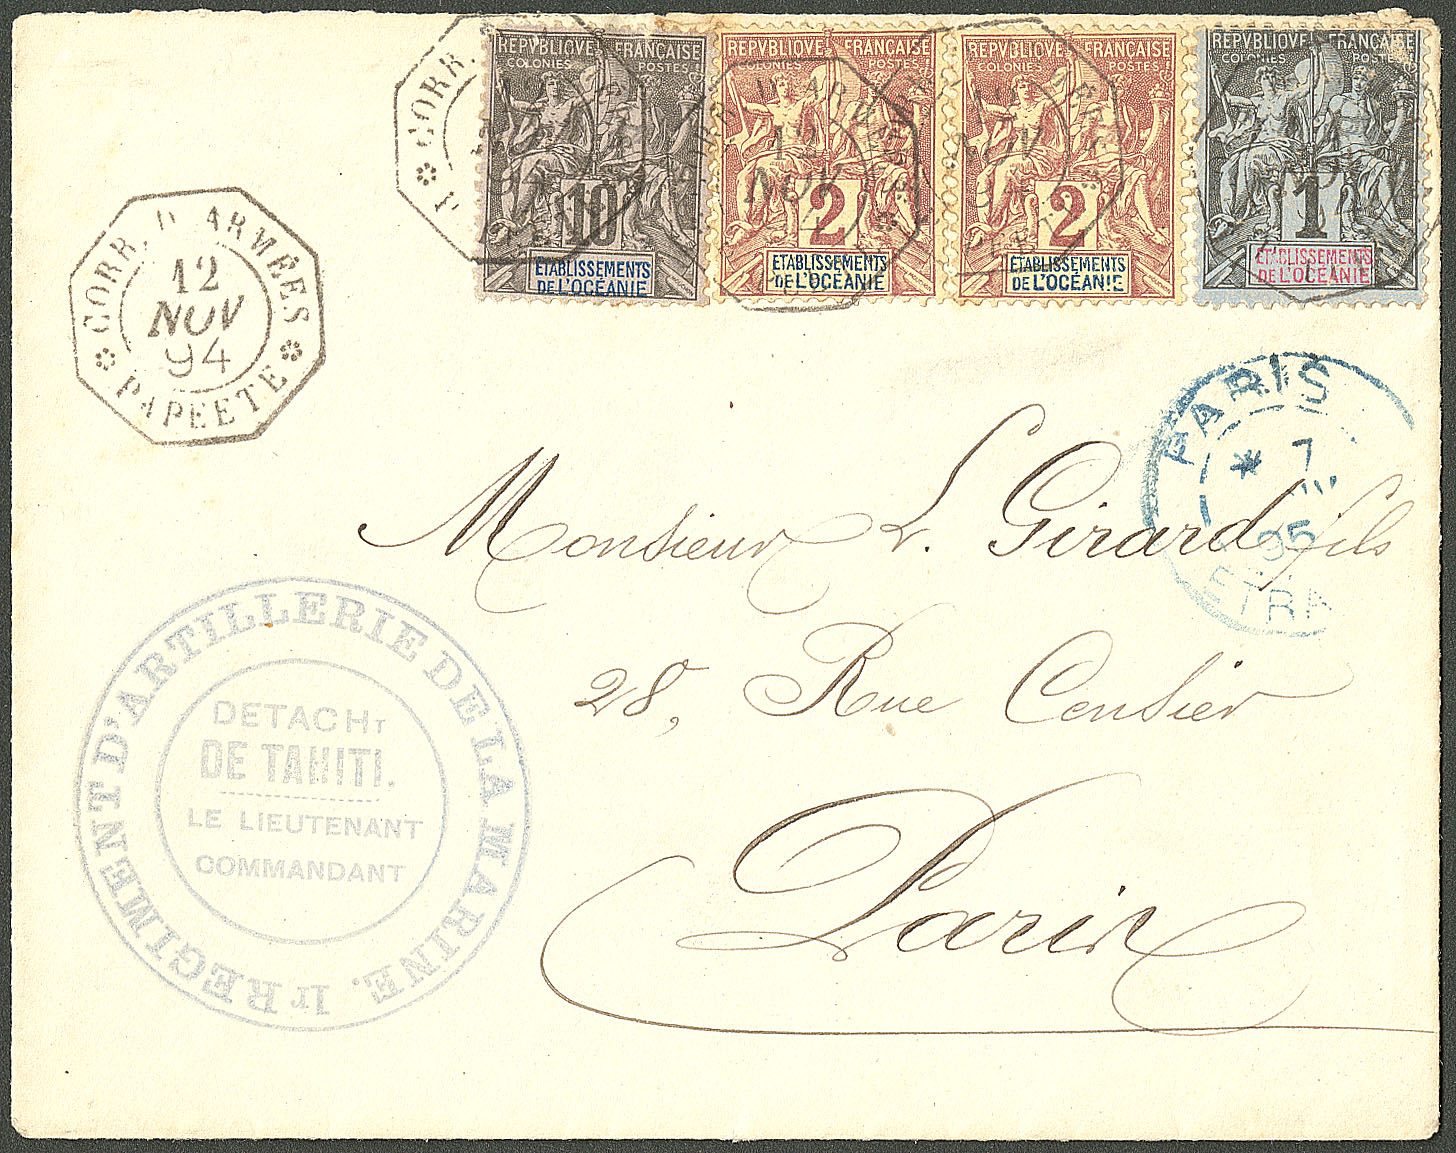 REPVBLIQVE FRANÇAISE
COLONIES POSTES
10
ÉTABLISSEMENTS
DE L'OCÉANIE
REPVBLIQVE FRANÇAISE
COLONIES POSTES
2
ÉTABLISSEMENTS
DE L'OCÉANIE
REPVBLIQVE FRANÇAISE
COLONIES POSTES
2
ÉTABLISSEMENTS
DE L'OCÉANIE
REPVBLIQVE FRANÇAISE
COLONIES POSTES
1
ÉTABLISSEMENTS
DE L'OCÉANIE
CORR.
CORR. D'ARMÉES
12
NOV
12
NOV
CORR. D'ARMÉES
12
NOV
94
PAPEETE
PARIS
* 7
95
ETRA
Monsieur L. Girard fils
28, Rue Censier
Paris
1r REGIMENT D'ARTILLERIE DE LA MARINE.
DETACHT
DE TAHITI.
LE LIEUTENANT
COMMANDANT